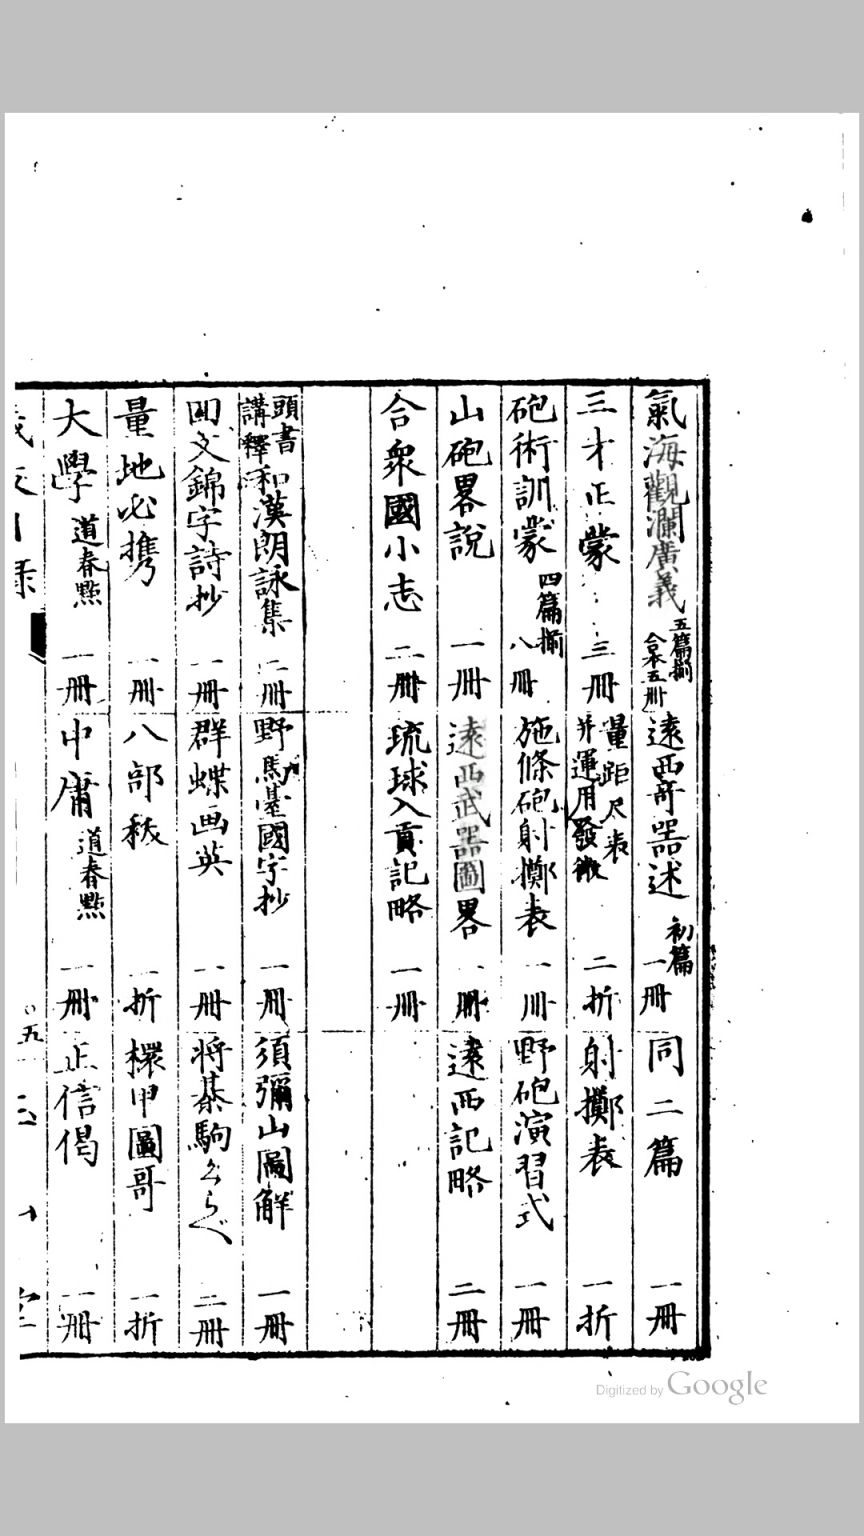 氣海觀瀾廣義 五篇揃 合本五冊 遠西奇器述 初篇 一冊 同二篇 一冊
三才正蒙 三冊 量距尺表 并運用發微 二折 射擲表 一折
砲術訓蒙 四篇揃 八冊 施條砲射擲表 一冊 野砲演習式 一冊
山砲畧説 一冊 遠西武器圖畧 一冊 遠西記略 二冊
合衆國小志 二冊 琉球入貢記略 一冊
頭書講釋 和漢朗詠集 二冊 野馬臺國字抄 一冊 須彌山圖解 一冊
回文錦字詩抄 一冊 群蝶画英 一冊 将棊駒くらべ 二冊
量地必携 一冊 八部秡 一折 擐甲圖哥 一折
大學 道春點 一冊 中庸 道春點 一冊 正信偈 一冊
Digitized by Google